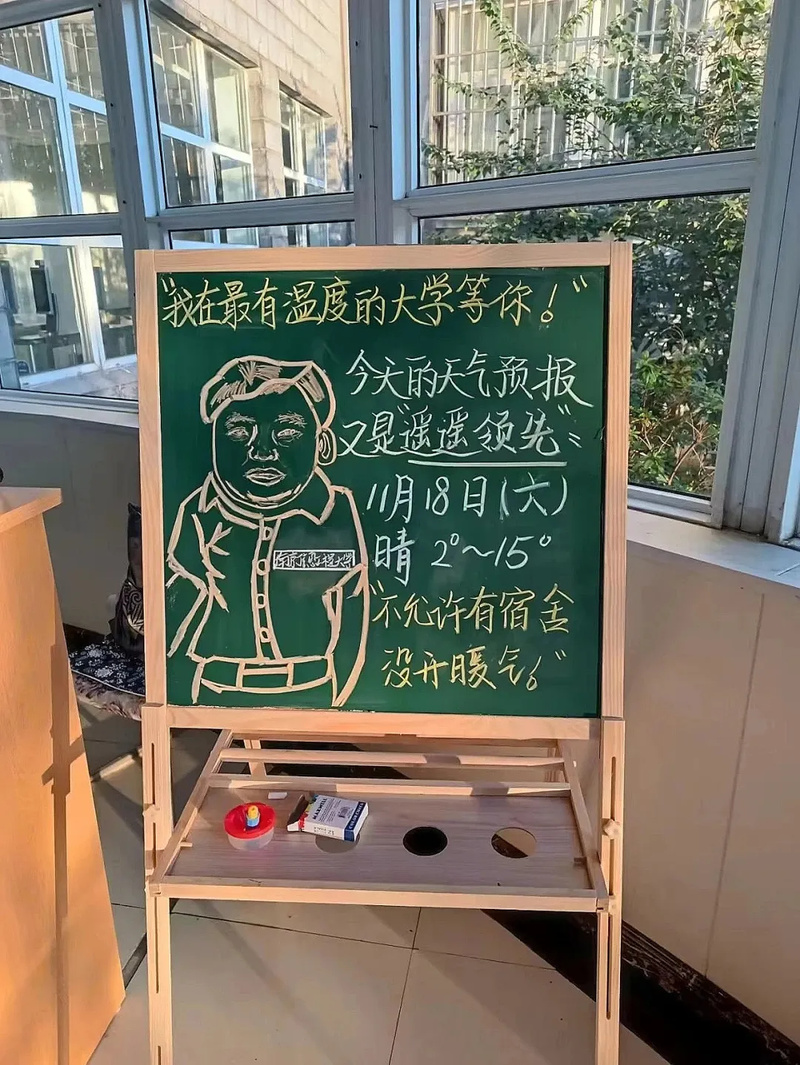 "我在最有温度的大学等你！"
今天的天气预报
又是"遥遥领先"
11月18日(六)
晴 2°~15°
"不允许有宿舍
没开暖气！"